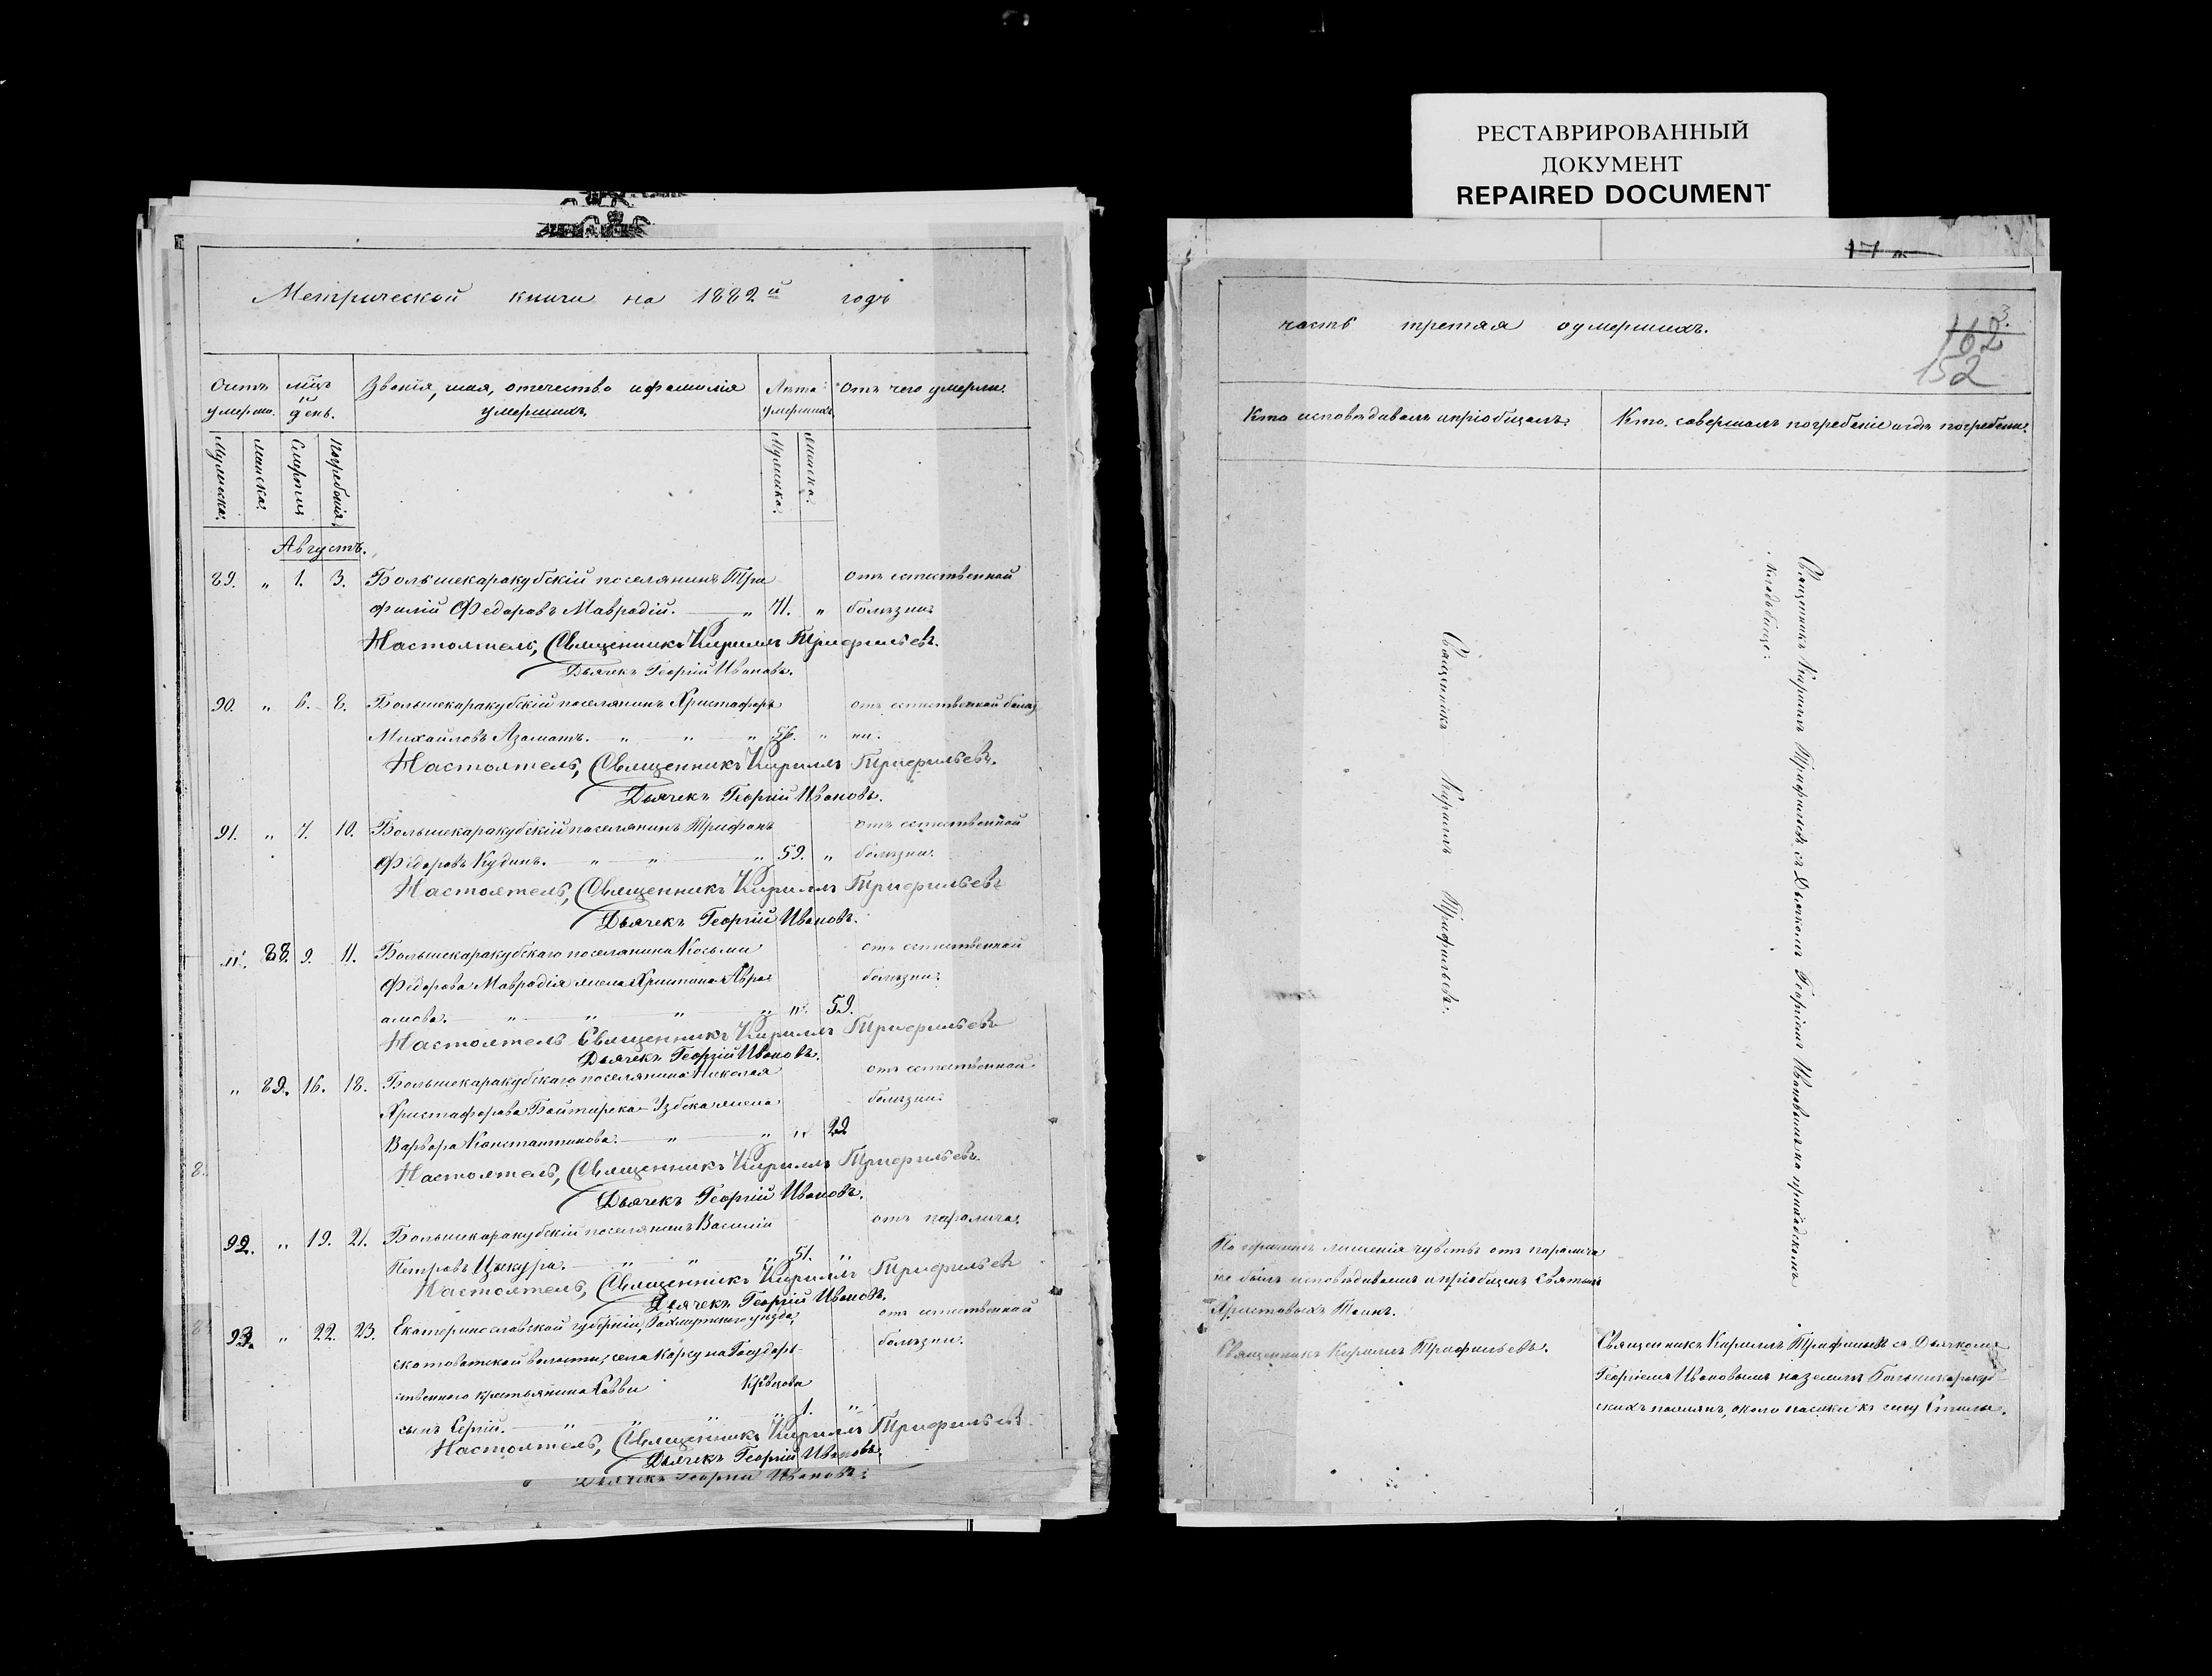 РЕСТАВРИРОВАННЫЙ
ДОКУМЕНТ
REPAIRED DOCUMENT
Метрической книги на 1882й годъ
Счетъ умерши.
мѣцъ и день.
Званія, имя, отечество и фамилія умершихъ.
Лѣта умершихъ
Отъ чего умерли.
Мужеска.
женска.
Смерти
Погребенія.
Мужеска.
женска.
Августъ.
89. „ 1. 3. Большекаракубскій поселянинъ Три отъ естественной
филій Федоровъ Маврадій. „ 71. „ болѣзни
Настоятель, Священникъ Кириллъ Трифильевъ.
Дьячекъ Георгій Ивановъ.
90. „ 6. 8. Большекаракубскій поселянинъ Христофоръ отъ естественной болѣз
Михайловъ Азаматъ. „ „ „ 56. „ ни.
Настоятель, Священникъ Кириллъ Трифильевъ.
Дьячекъ Георгій Ивановъ.
91. „ 7. 10. Большекаракубскій поселянинъ Трифонъ отъ естественной
Федоровъ Кудинъ. „ „ „ 59. „ болѣзни.
Настоятель, Священникъ Кириллъ Трифильевъ
Дьячекъ Георгій Ивановъ.
„ 88. 9. 11. Большекаракубскаго поселянина Косьми отъ естественной
Федорова Маврадія жена Христина Авра- болѣзни.
амова. „ „ „ „ „ 59.
Настоятель Священникъ Кириллъ Трифильевъ
Дьячекъ Георгій Ивановъ.
„ 89. 16. 18. Большекаракубскаго поселянина Николая отъ естественной
Христафорова Байтирека-Узбека жена болѣзни.
Варвара Константинова. „ „ „ 29
Настоятель, Священникъ Кириллъ Трифильевъ.
Дьячекъ Георгій Ивановъ.
92. „ 19. 21. Большекаракубскій поселянинъ Василій отъ паралича.
Петровъ Цыкура. „ „ „ 51. „
Настоятель, Священникъ Кириллъ Трифильевъ
Дьячекъ Георгій Ивановъ.
93. „ 22. 23. Екатеринославской губерніи, Бахмутскаго уѣзда, отъ естественной
скотоватской волости, села Государ- болѣзни.
ственного крестьянина Савви Крѣвцова
сынъ Сергій. „ „ „ „ 1. „
Настоятель, Священникъ Кириллъ Трифильевъ.
Дьячекъ Георгій Ивановъ.
Дьячекъ Георгій Ивановъ.
часть третая оумершихъ.
3.
162
152
Кто исповѣдивалъ и пріобщалъ.
Кто совершалъ погребеніе и гдѣ погребены.
Священникъ Кириллъ Трифильевъ.
Священникъ Кириллъ Трифильевъ съ Дьячкомъ Георгіемъ Ивановымъ на приходскомъ
кладьбище.
По причинѣ лишенія чувствъ отъ паралича
не былъ исповѣдиванъ и пріобщенъ Святыхъ
Христовыхъ Таинъ.
Священникъ Кириллъ Трифильевъ.
Священникъ Кириллъ Трифильевъ съ Дьячкомъ
Георгіемъ Ивановымъ на земли Большекаракуб
скихъ поселянъ, около пасики къ селу Стила.